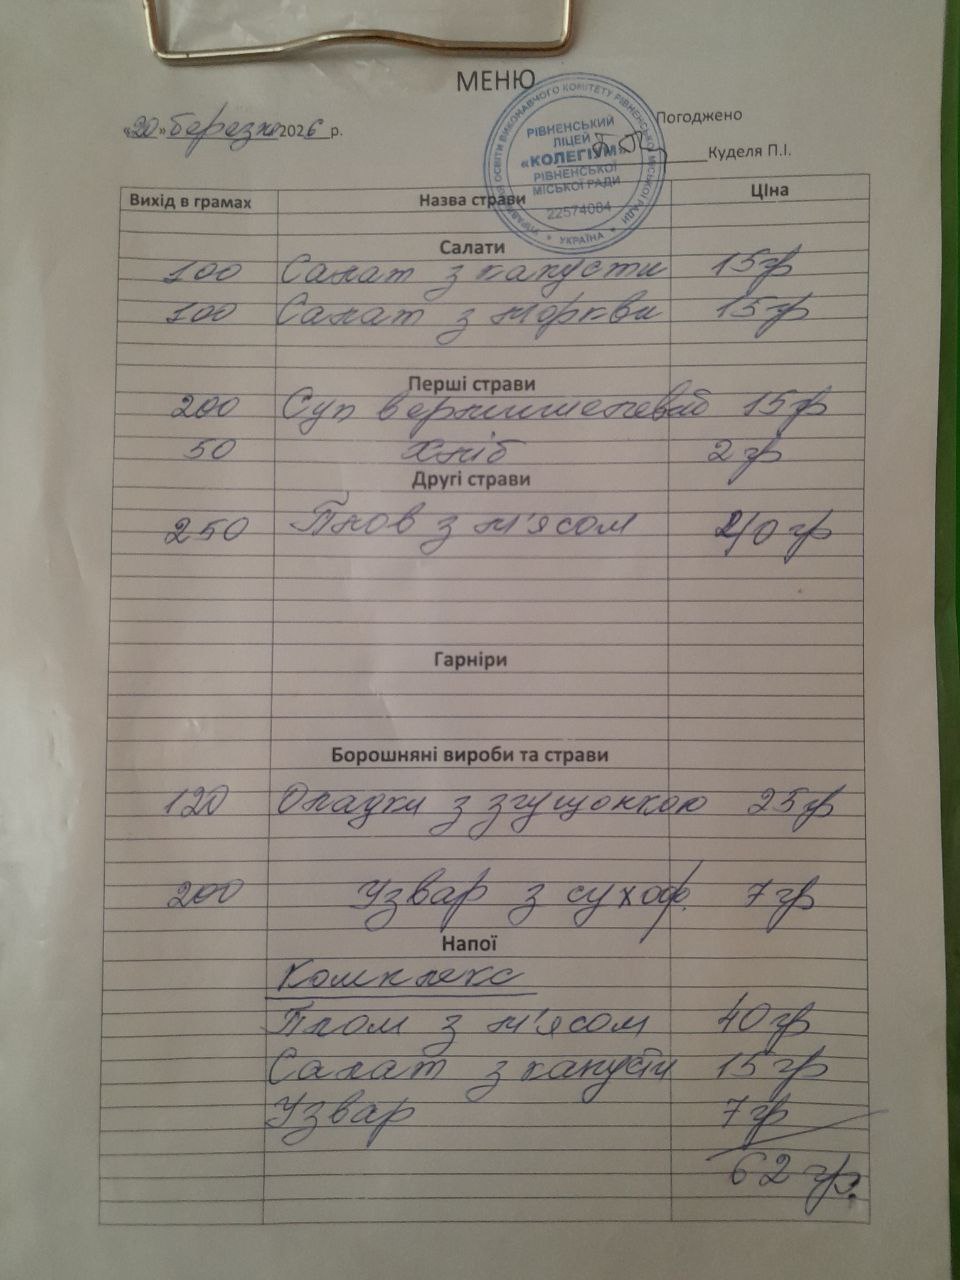 МЕНЮ
Погоджено
«20» березня 2026 р.
Куделя П.І.
УПРАВЛІННЯ ОСВІТИ ВИКОНАВЧОГО КОМІТЕТУ РІВНЕНСЬКОЇ МІСЬКОЇ РАДИ
РІВНЕНСЬКИЙ
ЛІЦЕЙ
«КОЛЕГІУМ»
РІВНЕНСЬКОЇ
МІСЬКОЇ РАДИ
22574084
* УКРАЇНА *
Вихід в грамах Назва страви Ціна
Салати
100 Салат з капусти 15 гр
100 Салат з моркви 15 гр
Перші страви
200 Суп вермишелевий 15 гр
50 Хліб 2 гр
Другі страви
250 Плов з м'ясом 40 гр
Гарніри
Борошняні вироби та страви
120 Оладки з згущонкою 25 гр
200 Узвар з сухоф. 7 гр
Напої
Комплекс
Плом з м'ясом 40 гр
Салат з капусти 15 гр
Узвар 7 гр
62 гр.